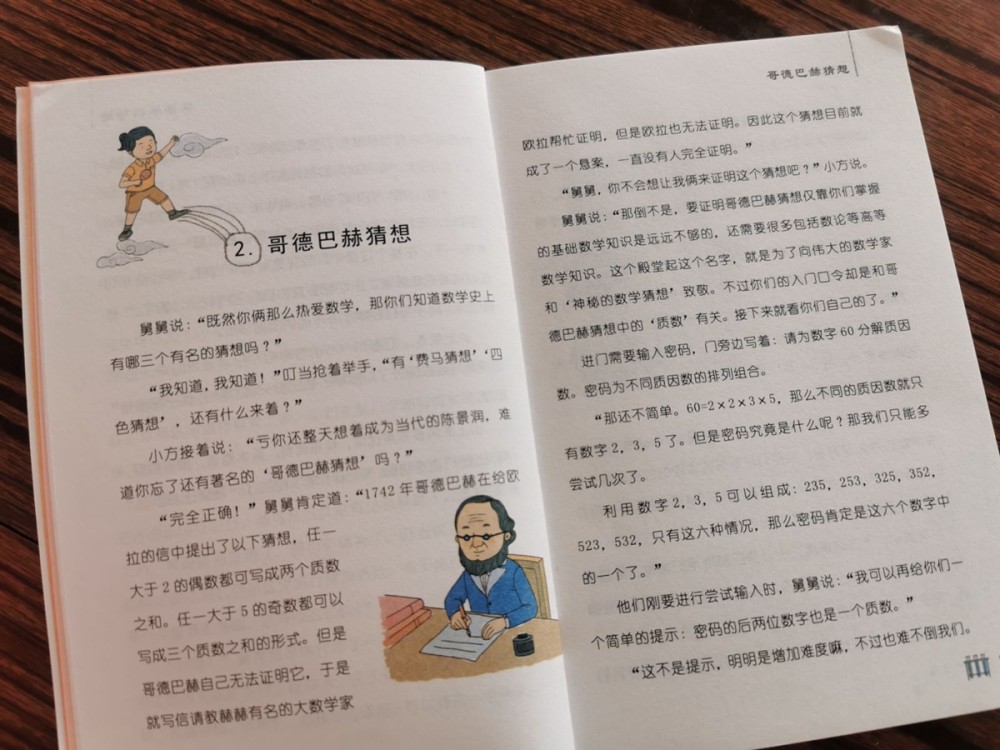 2. 哥德巴赫猜想
舅舅说：“既然你俩那么热爱数学，那你们知道数学史上
有哪三个有名的猜想吗？”
“我知道，我知道！”叮当抢着举手，“有‘费马猜想’‘四
色猜想’，还有什么来着？”
小方接着说：“亏你还整天想着成为当代的陈景润，难
道你忘了还有著名的‘哥德巴赫猜想’吗？”
“完全正确！”舅舅肯定道：“1742 年哥德巴赫在给欧
拉的信中提出了以下猜想，任一
大于 2 的偶数都可写成两个质数
之和。任一大于 5 的奇数都可以
写成三个质数之和的形式。但是
哥德巴赫自己无法证明它，于是
就写信请教赫赫有名的大数学家
哥德巴赫猜想
欧拉帮忙证明，但是欧拉也无法证明。因此这个猜想目前就
成了一个悬案，一直没有人完全证明。”
“舅舅，你不会想让我俩来证明这个猜想吧？”小方说。
舅舅说：“那倒不是，要证明哥德巴赫猜想仅靠你们掌握
的基础数学知识是远远不够的，还需要很多包括数论等高等
数学知识。这个殿堂起这个名字，就是为了向伟大的数学家
和‘神秘的数学猜想’致敬。不过你们的入门口令却是和哥
德巴赫猜想中的‘质数’有关。接下来就看你们自己的了。”
进门需要输入密码，门旁边写着：请为数字 60 分解质因
数。密码为不同质因数的排列组合。
“那还不简单。60=2×2×3×5，那么不同的质因数就只
有数字 2，3，5 了。但是密码究竟是什么呢？那我们只能多
尝试几次了。
利用数字 2，3，5 可以组成：235，253，325，352，
523，532，只有这六种情况，那么密码肯定是这六个数字中
的一个了。”
他们刚要进行尝试输入时，舅舅说：“我可以再给你们一
个简单的提示：密码的后两位数字也是一个质数。”
“这不是提示，明明是增加难度嘛，不过也难不倒我们。